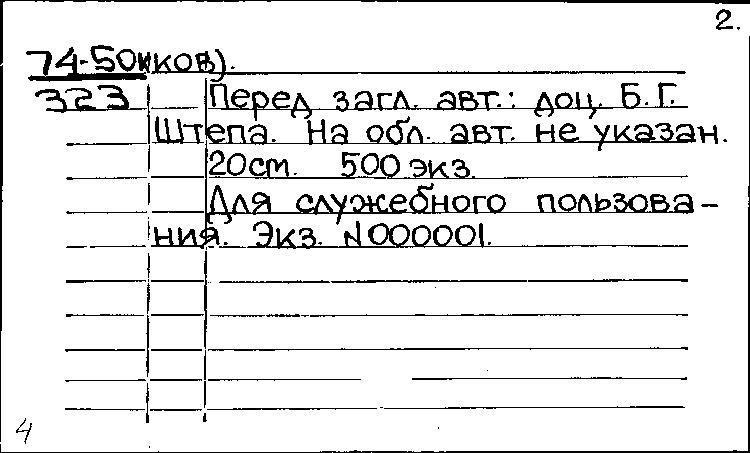 2.
74-50иков).
323 Перед загл. авт.: доц. Б.Г.
Штепа. На обл. авт. не указан.
20см. 500 экз.
Для служебного пользова-
ния. Экз. N000001.
4